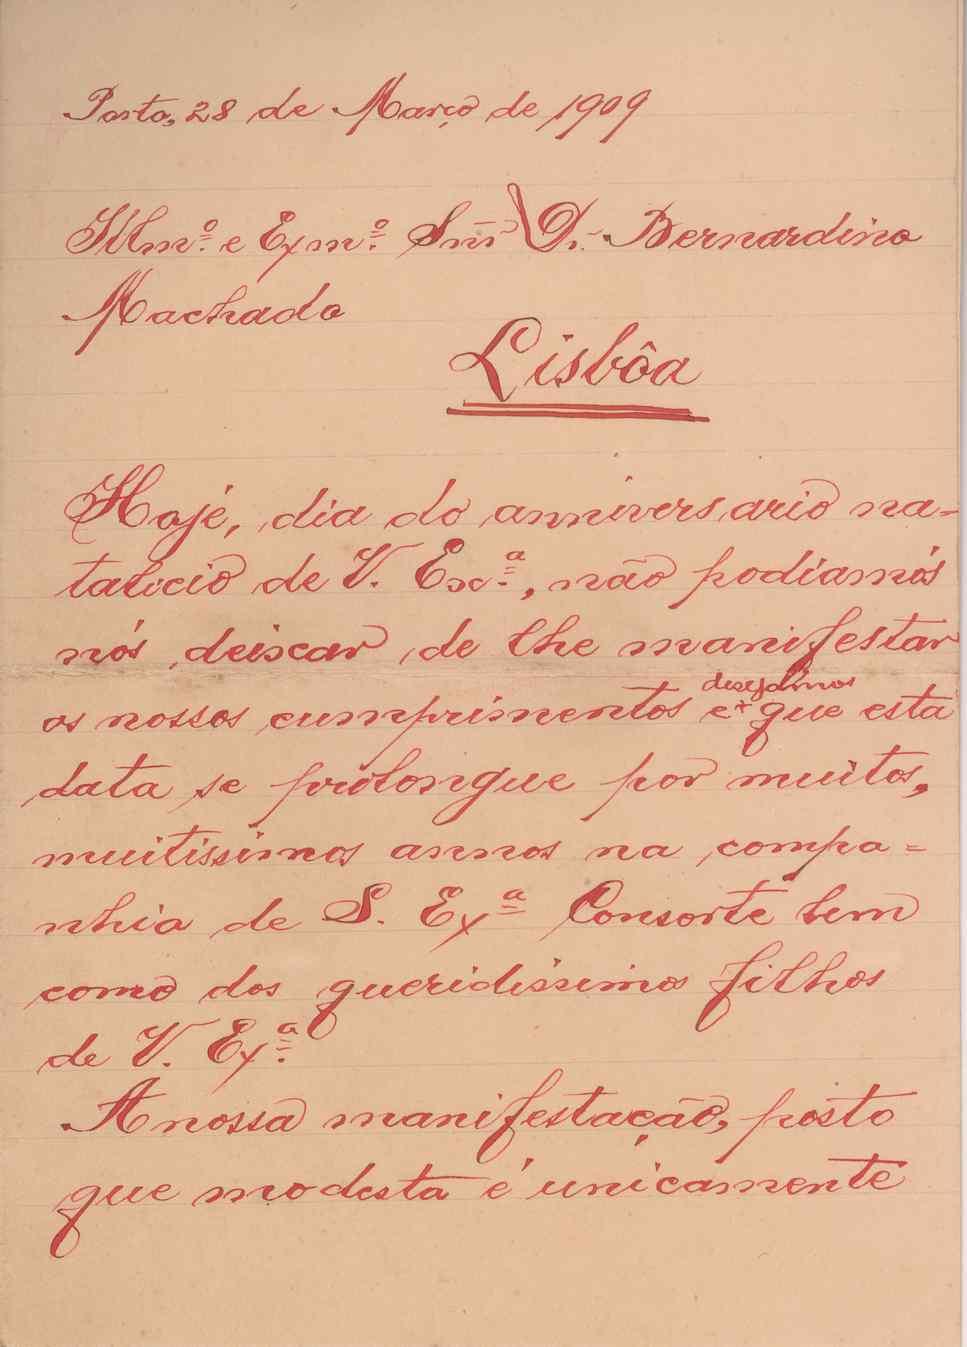 Porto, 28 de Março de 1909
Illmº. e Exmº. Snr D. Bernardino
Machado
Lisbôa
Hoje, dia do anniversario na=
talicio de V. Exª., não podiamos
nós deixar de lhe manifestar
desejâmos
os nossos cumprimentos e + que esta
data se prolongue por muitos,
muitissimos annos na compa=
nhia de S. Exª Consorte bem
como dos queridissimos filhos
de V. Exª.
A nossa manifestação, posto
que modesta é unicamente